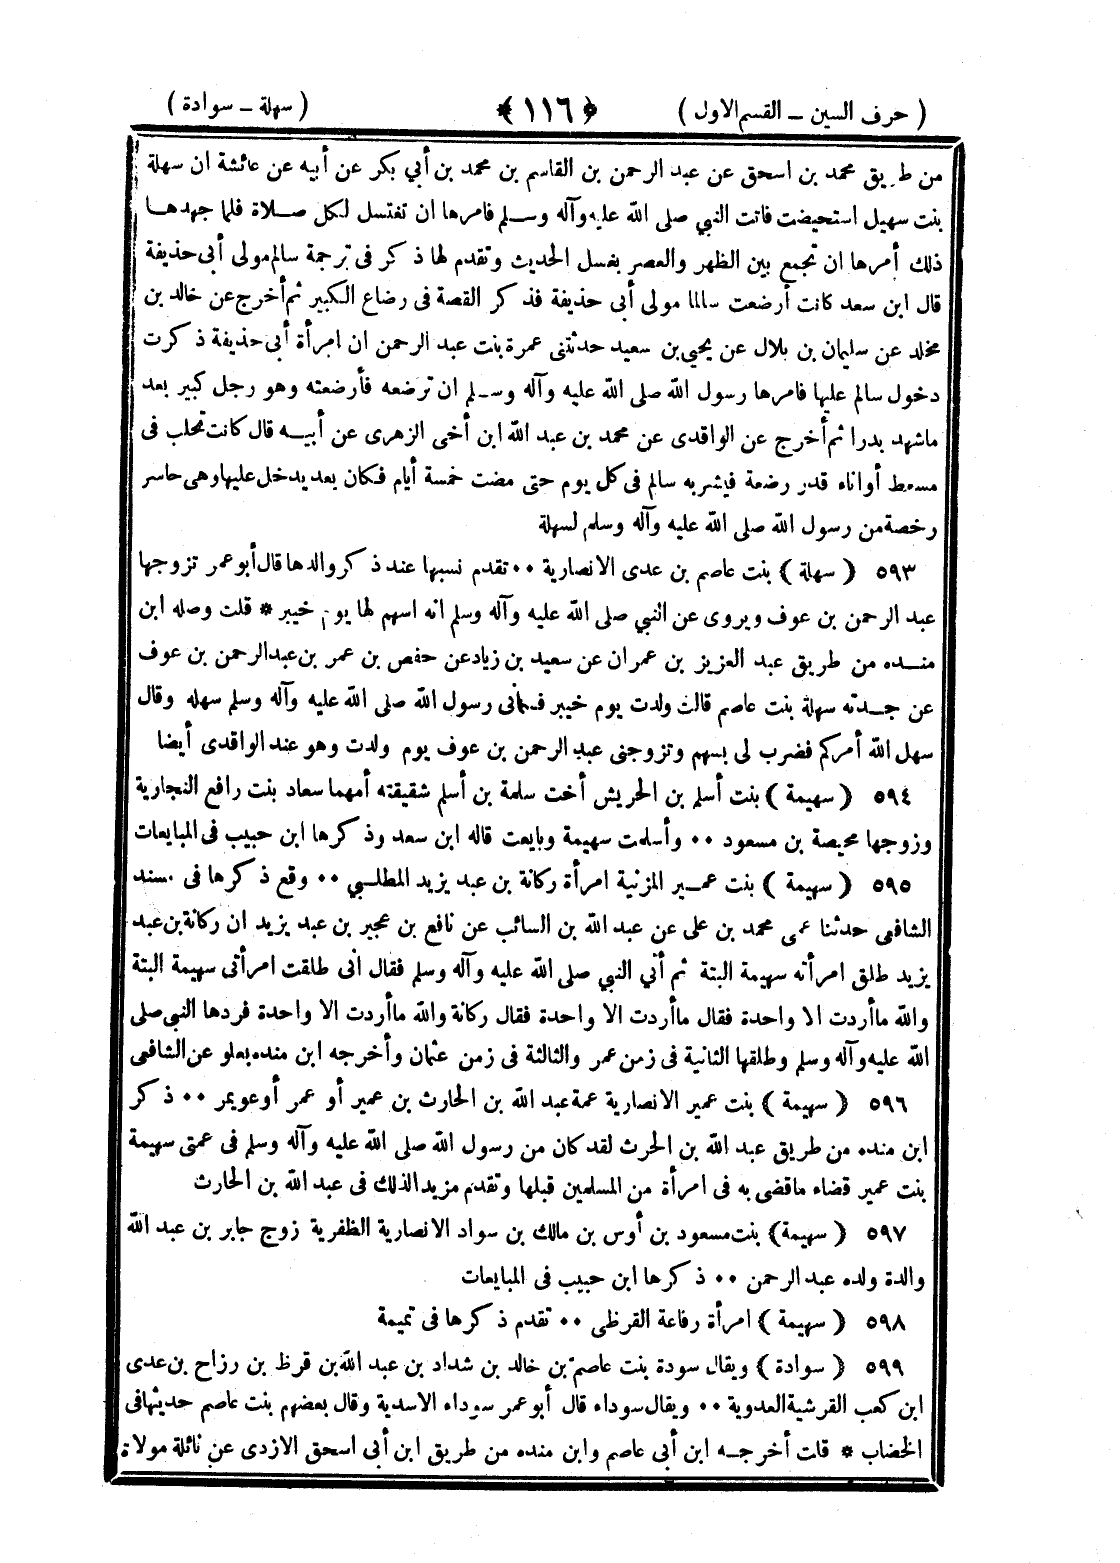 ( حرف السين – القسم الاول ) ﴿ ١١٦ ﴾ ( سهلة – سوادة )
من طريق محمد بن اسحق عن عبد الرحمن بن القاسم بن محمد بن أبي بكر عن أبيه عن عائشة ان سهلة
بنت سهيل استحيضت فاتت النبي صلى الله عليه وآله وسلم فامرها ان تغتسل لكل صلاة فلما جهدها
ذلك أمرها ان تجمع بين الظهر والعصر بغسل الحديث وتقدم لها ذكر فى ترجمة سالم مولى أبى حذيفة
قال ابن سعد كانت أرضعت سالما مولى أبى حذيفة فذكر القصة فى رضاع الكبير ثم أخرج عن خالد بن
مخلد عن سليمان بن بلال عن يحيى بن سعيد حدثتنى عمرة بنت عبد الرحمن ان امرأة أبى حذيفة ذكرت
دخول سالم عليها فامرها رسول الله صلى الله عليه وآله وسلم ان ترضعه فأرضعته وهو رجل كبير بعد
ماشهد بدرا ثم أخرج عن الواقدى عن محمد بن عبد الله ابن أخى الزهرى عن أبيه قال كانت تحلب فى
مسعط أواناء قدر رضعة فيشربه سالم فى كل يوم حتى مضت خمسة أيام فكان بعد يدخل عليها وهى حاسر
رخصة من رسول الله صلى الله عليه وآله وسلم لسهلة
٥٩٣ ( سهلة ) بنت عاصم بن عدى الانصارية ٠٠ تقدم نسبها عند ذكر والدها قال أبو عمر تزوجها
عبد الرحمن بن عوف ويروى عن النبي صلى الله عليه وآله وسلم انه اسهم لها يوم خيبر * قلت وصله ابن
منده من طريق عبد العزيز بن عمران عن سعيد بن زياد عن حفص بن عمر بن عبد الرحمن بن عوف
عن جدته سهلة بنت عاصم قالت ولدت يوم خيبر فسمانى رسول الله صلى الله عليه وآله وسلم سهله وقال
سهل الله أمركم فضرب لى بسهم وتزوجنى عبد الرحمن بن عوف يوم ولدت وهو عند الواقدى أيضا
٥٩٤ ( سهيمة ) بنت أسلم بن الحريش أخت سلمة بن أسلم شقيقته أمهما سعاد بنت رافع النجارية
وزوجها محيصة بن مسعود ٠٠ وأسلمت سهيمة وبايعت قاله ابن سعد وذكرها ابن حبيب فى المبايعات
٥٩٥ ( سهيمة ) بنت عمير المزنية امرأة ركانة بن عبد يزيد المطلبي ٠٠ وقع ذكرها فى مسند
الشافعى حدثنا عمى محمد بن على عن عبد الله بن السائب عن نافع بن عجير بن عبد يزيد ان ركانة بن عبد
يزيد طلق امرأته سهيمة البتة ثم أتى النبي صلى الله عليه وآله وسلم فقال انى طلقت امرأتى سهيمة البتة
والله ماأردت الا واحدة فقال ماأردت الا واحدة فقال ركانة والله ماأردت الا واحدة فردها النبى صلى
الله عليه وآله وسلم وطلقها الثانية فى زمن عمر والثالثة فى زمن عثمان وأخرجه ابن منده بعلو عن الشافعى
٥٩٦ ( سهيمة ) بنت عمير الانصارية عمة عبد الله بن الحارث بن عمير أو عمر أو عويمر ٠٠ ذكر
ابن منده من طريق عبد الله بن الحرث لقد كان من رسول الله صلى الله عليه وآله وسلم فى عمتى سهيمة
بنت عمير قضاء ماقضى به فى امرأة من المسلمين قبلها وتقدم مزيد الذلك فى عبد الله بن الحارث
٥٩٧ ( سهيمة ) بنت مسعود بن أوس بن مالك بن سواد الانصارية الظفرية زوج جابر بن عبد الله
والدة ولده عبد الرحمن ٠٠ ذكرها ابن حبيب فى المبايعات
٥٩٨ ( سهيمة ) امرأة رفاعة القرظى ٠٠ تقدم ذكرها فى تميمة
٥٩٩ ( سوادة ) ويقال سودة بنت عاصم بن خالد بن شداد بن عبد الله بن قرظ بن رزاح بن عدى
ابن كعب القرشية العدوية ٠٠ ويقال سوداء قال أبو عمر سوداء الاسدية وقال بعضهم بنت عاصم حديثها فى
الخضاب * قلت أخرجه ابن أبي عاصم وابن منده من طريق ابن أبى اسحق الازدى عن نائلة مولاة